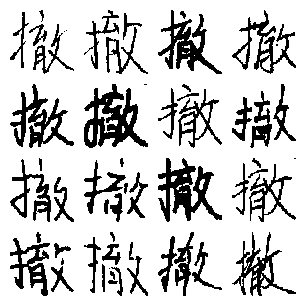 撤撤撤撤
撤撤撤撤
撤撤撤撤
撤撤撤撤